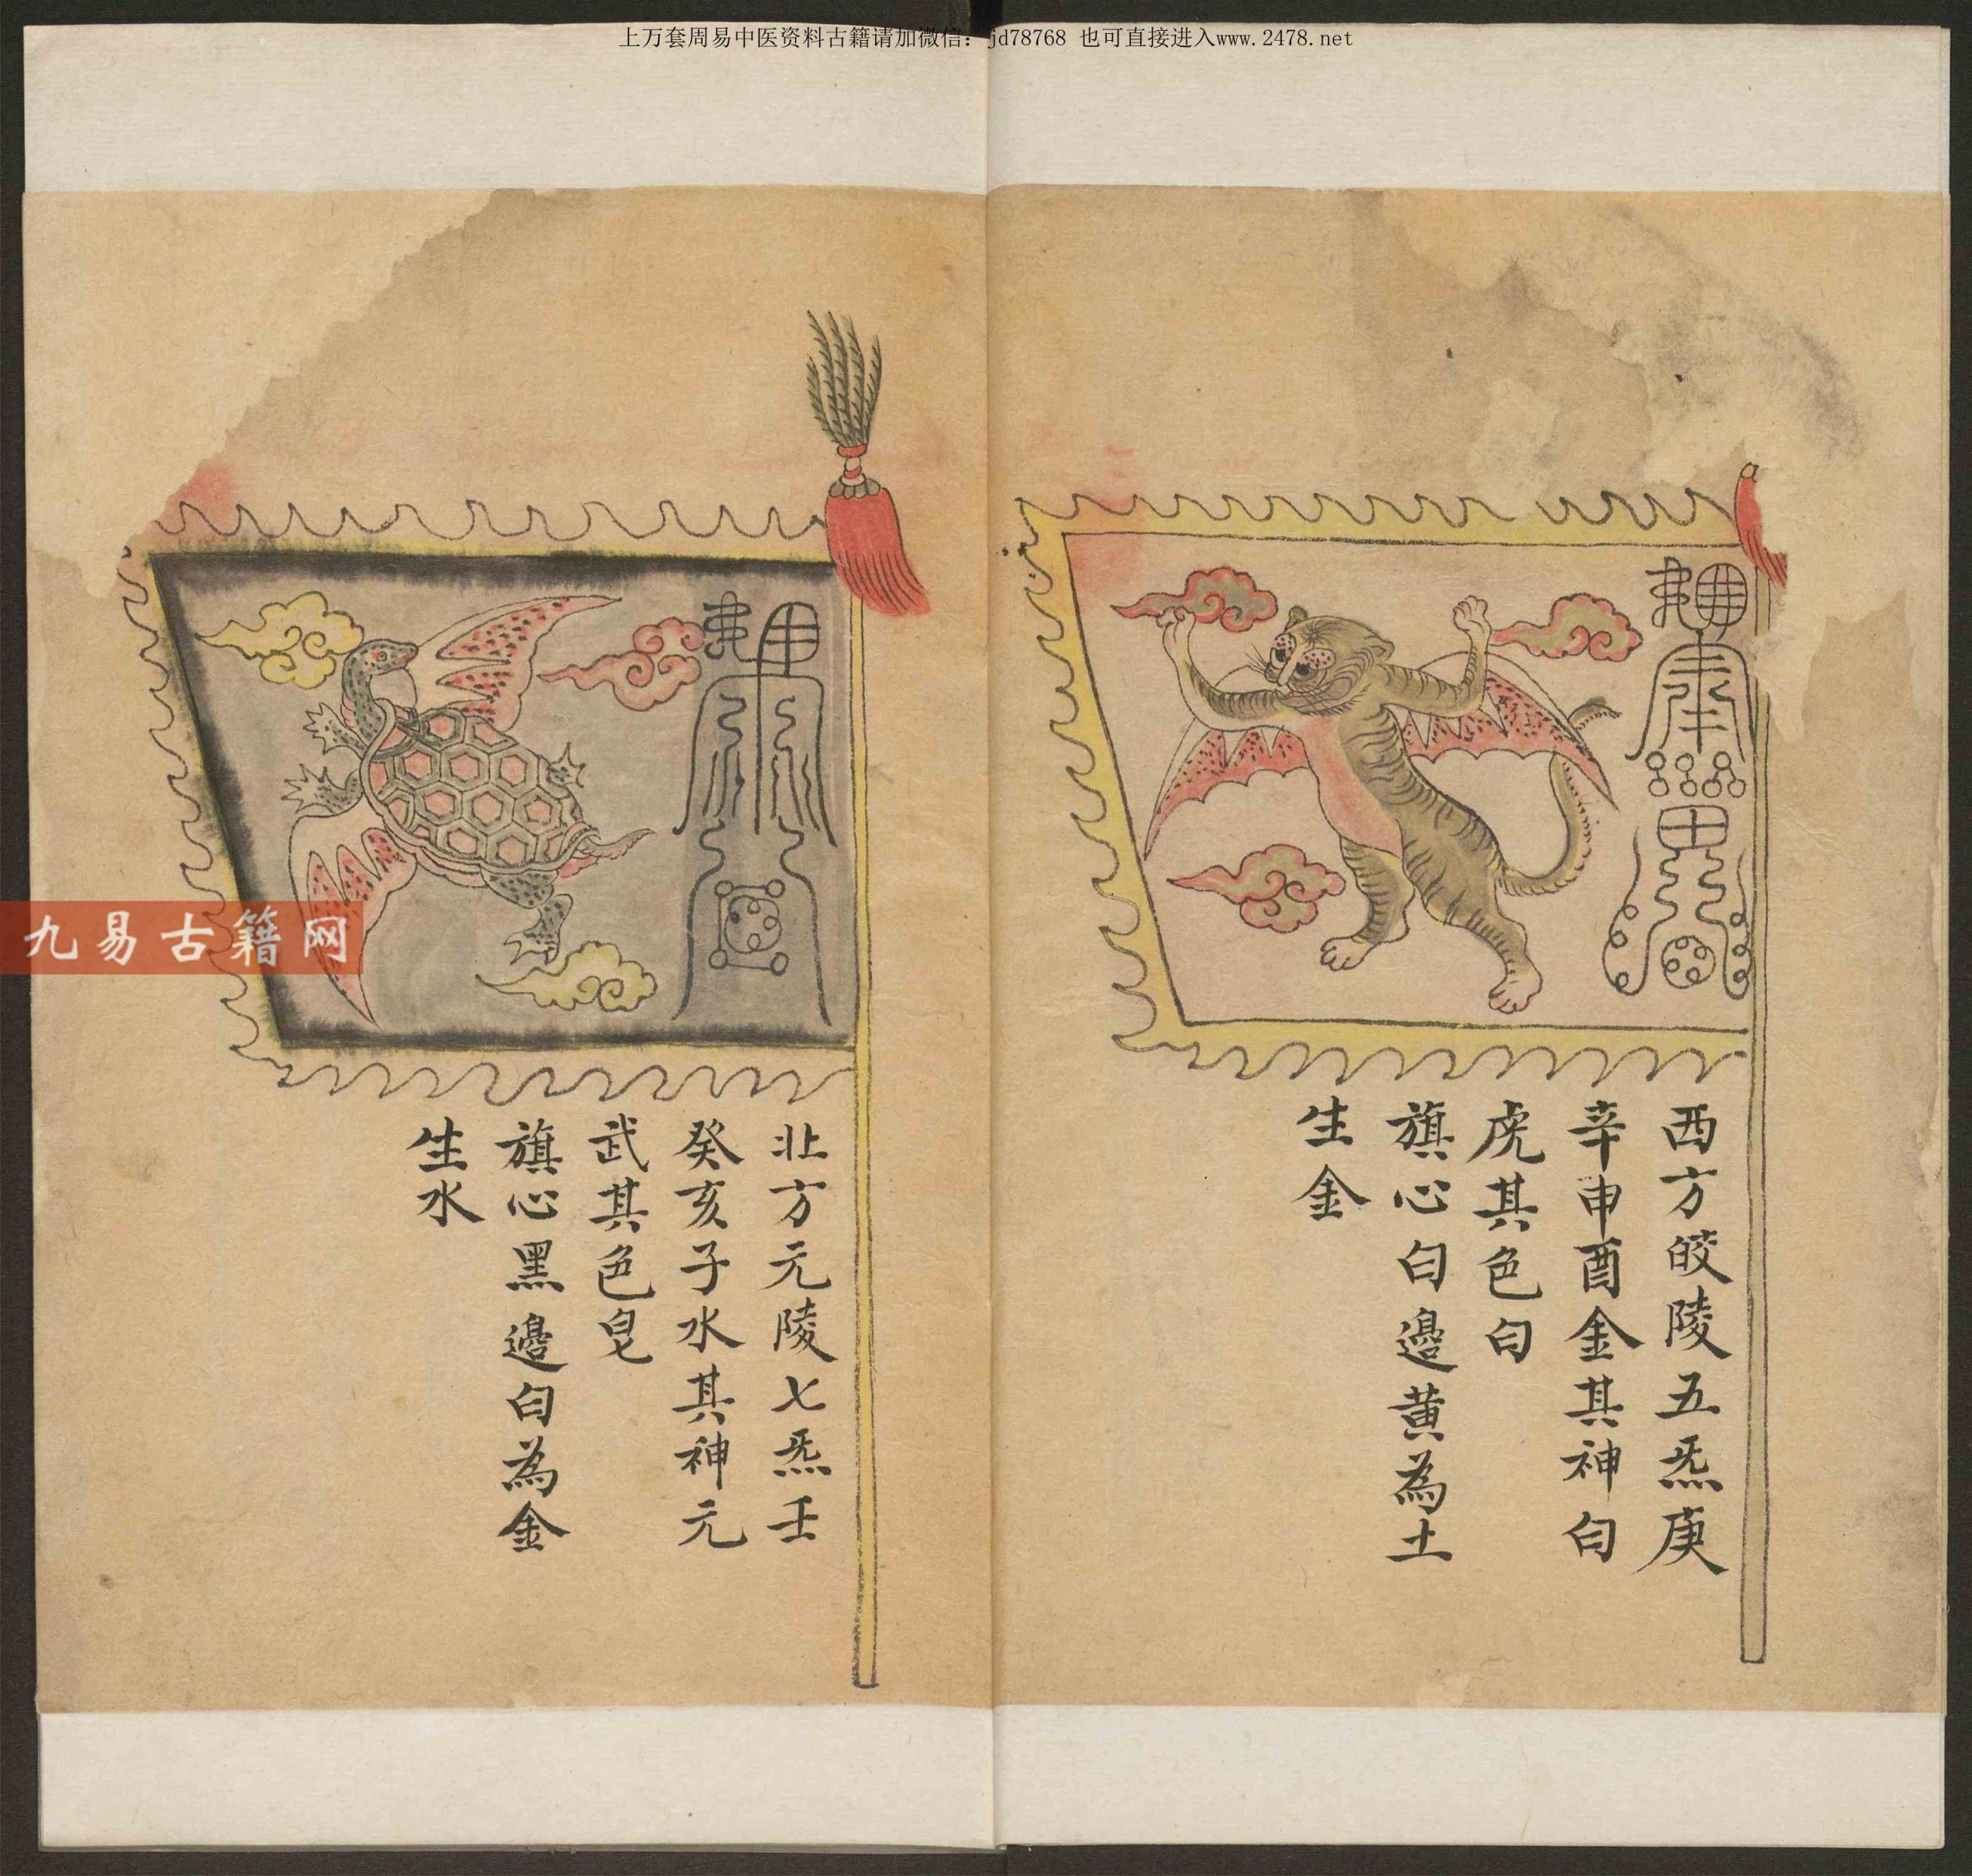 上万套周易中医资料古籍请加微信：jd78768 也可直接进入www.2478.net
西方皎陵五炁庚
辛申酉金其神白
虎其色白
旗心白邊黄為土
生金
北方元陵七炁壬
癸亥子水其神元
武其色皂
旗心黑邊白為金
生水
九易古籍网